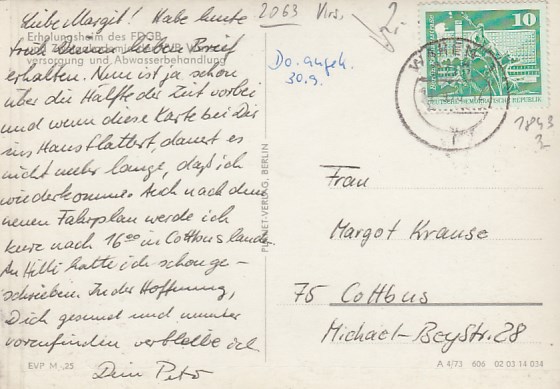 Liebe Margit! Habe heute
früh Deinen lieben Brief
erhalten. Nun ist ja schon
über die Hälfte der Zeit vorbei
und wenn diese Karte bei Dir
ins Haus flattert, dauert es
nicht mehr lange, daß ich
wiederkomme. Auch nach dem
neuen Fahrplan werde ich
kurz nach 16⁰⁰ in Cottbus landen.
An Hilli hatte ich schon ge-
schrieben. In der Hoffnung,
Dich gesund und munter
vorzufinden verbleibe ich
Dein Peter
Erholungsheim des FDGB
versorgung und Abwasserbehandlung
EVP M -,25
PLANET-VERLAG, BERLIN
2063
Do. angek.
30.9.
2.
10
DEUTSCHE DEMOKRATISCHE REPUBLIK
WAREN
1843
2
Frau
Margot Krause
75 Cottbus
Michael-Bey Str. 28
A 4/73 606 02 03 14 034